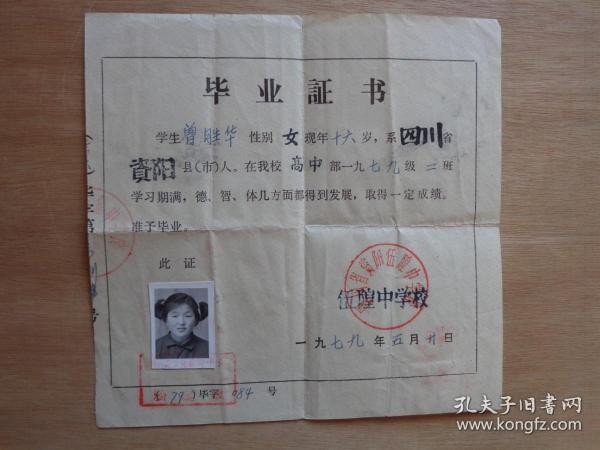 毕业証书
学生曾胜华 性别女现年十六岁，系四川省
資阳县(市)人。在我校高中部一九七九级二班
学习期满，德、智、体几方面都得到发展，取得一定成绩。
准予毕业。
此证
伍隍中学校
一九七九年五月廿日
(79)毕字084号
孔夫子旧书网
www.kongfz.com